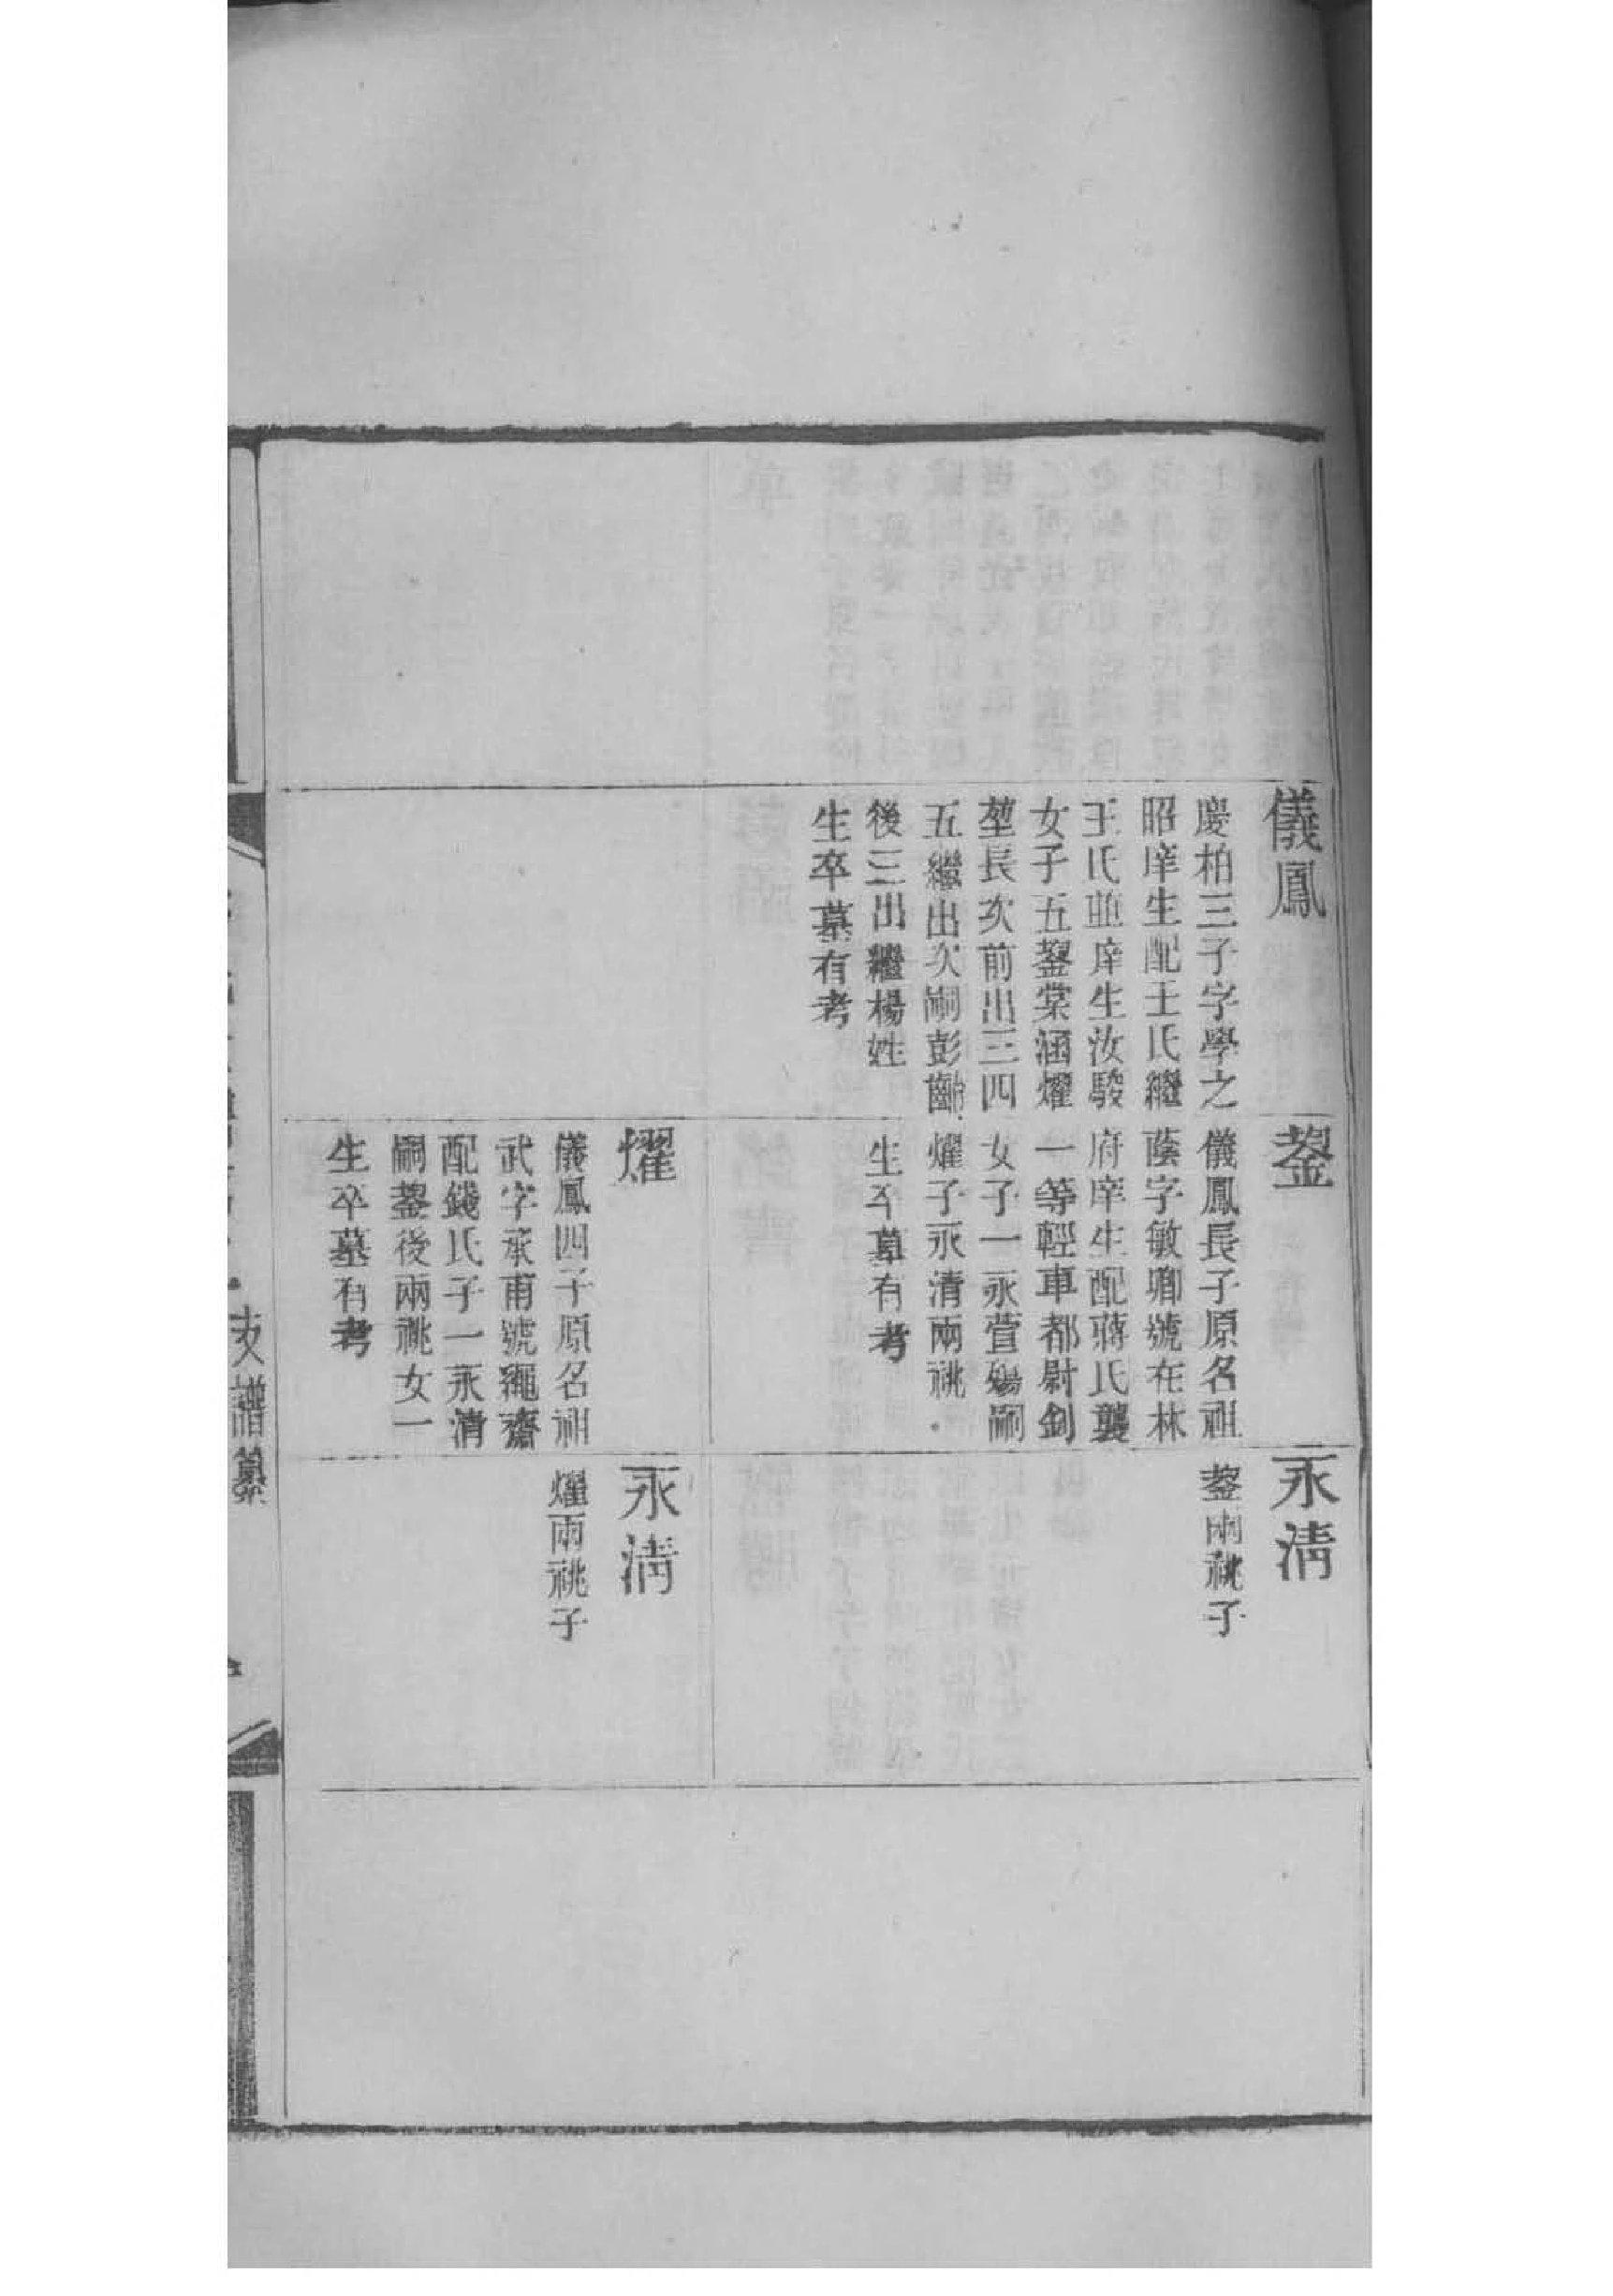 儀鳳
慶柏三子字學之
昭庠生配王氏繼
王氏並庠生汝駿
女子五鋆棠涵燿
堃長次前出三四
五繼出次嗣彭齡
後三出繼楊姓
生卒墓有考
鋆
儀鳳長子原名祖
蔭字敏卿號在林
府庠生配蔣氏襲
一等輕車都尉釗
女子一永萱殤嗣
燿子永清兩祧
生卒墓有考
永清
鋆兩祧子
燿
儀鳳四子原名祖
武字承甫號繩齋
配錢氏子一永清
嗣鋆後兩祧女一
生卒墓有考
永清
燿兩祧子
支譜纂